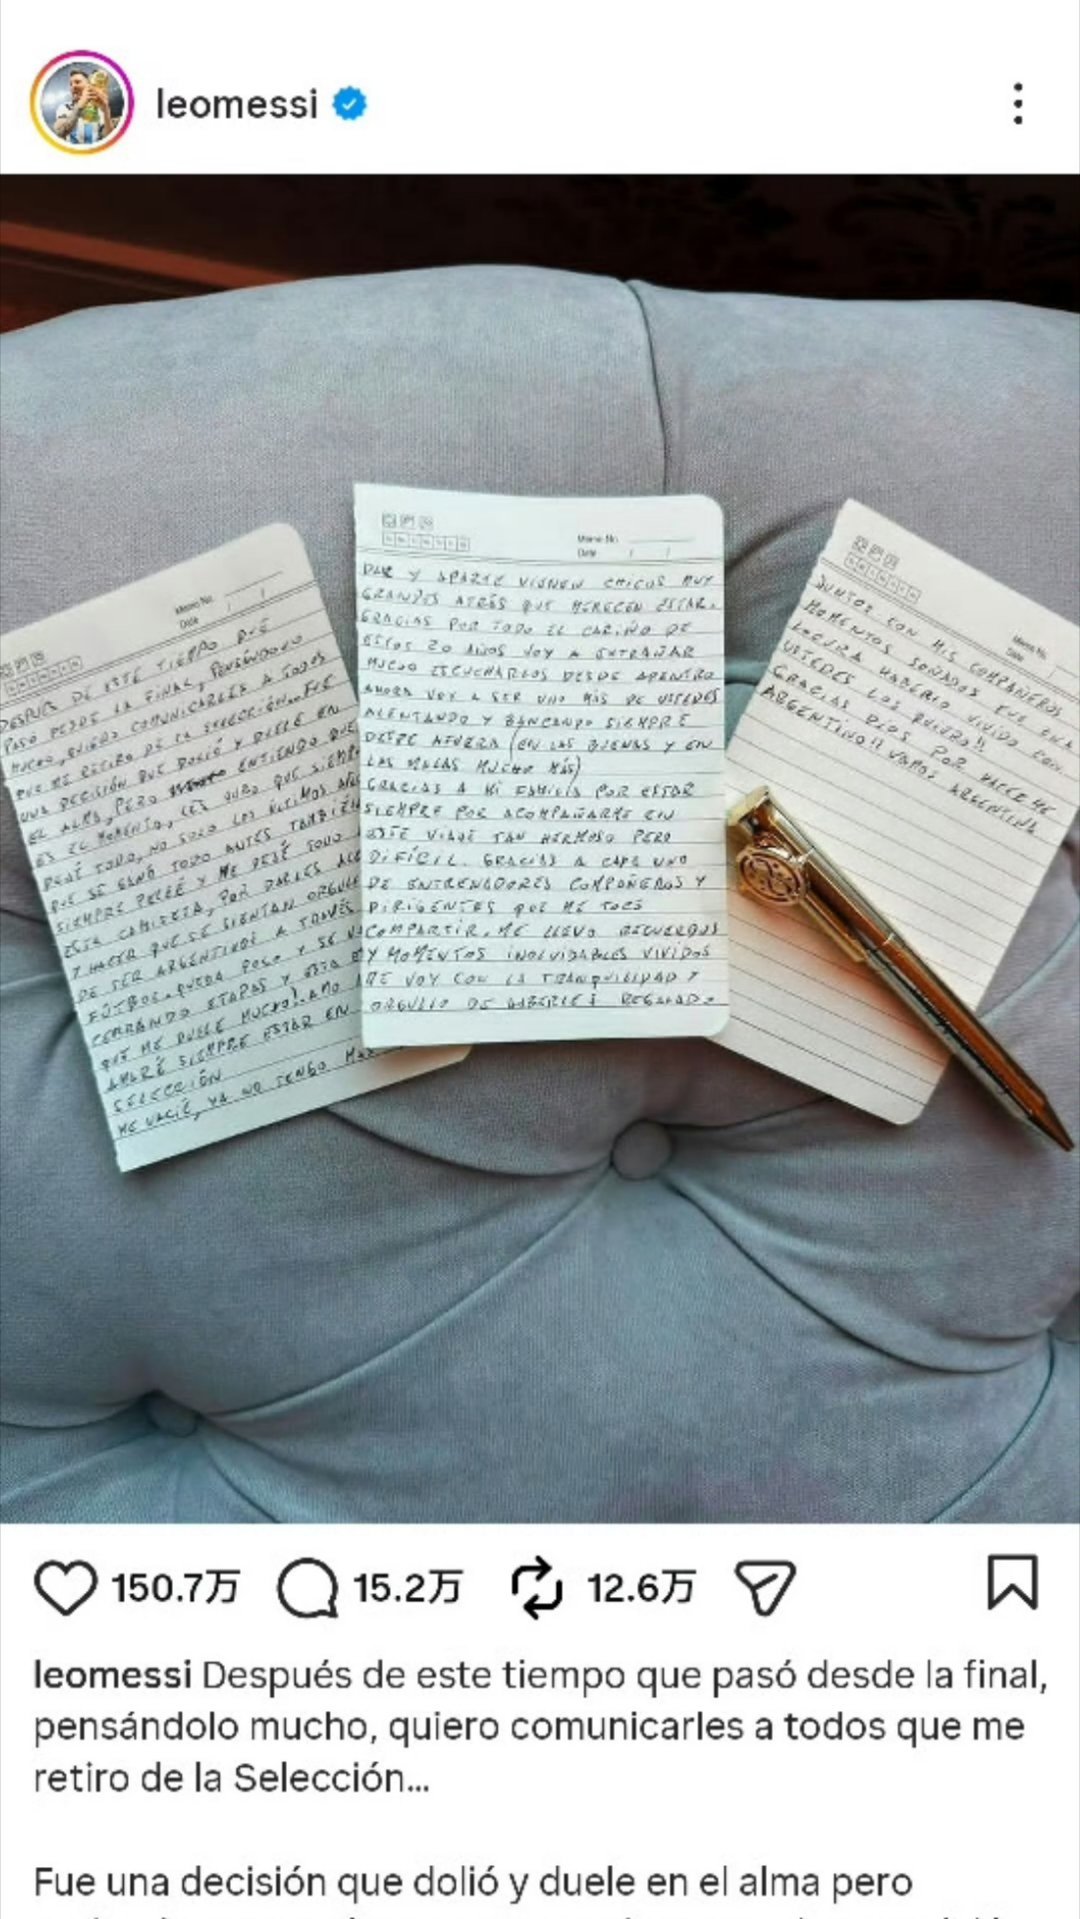 leomessi
Memo No.
Date / /
DESPUÉS DE ESTE TIEMPO QUE
PASÓ DESDE LA FINAL, PENSÁNDOLO
MUCHO, QUIERO COMUNICARLES A TODOS
QUE ME RETIRO DE LA SELECCIÓN... FUE
UNA DECISIÓN QUE DOLIÓ Y DUELE EN
EL ALMA, PERO ENTIENDO QUE
ES EL MOMENTO, LES JURO QUE SIEMPRE
DEJÉ TODO, NO SOLO LOS ÚLTIMOS AÑOS
QUE SE GANÓ TODO ANTES TAMBIÉN
SIEMPRE PELEÉ Y ME DEJÉ TODO
ESTA CAMISETA, POR DARLES
Y HACER QUE SE SIENTAN ORGULLO
DE SER ARGENTINOS A TRAVÉS
FÚTBOL. QUEDA POCO Y SE
CERRANDO ETAPAS Y ESTA
QUE ME DUELE MUCHO!. AMO
AMARÉ SIEMPRE ESTAR EN
SELECCIÓN
ME VACIÉ, YA NO TENGO
Memo No.
Date / /
DAR Y APARTE VIENEN CHICOS MUY
GRANDES ATRÁS QUE MERECEN ESTAR.
GRACIAS POR TODO EL CARIÑO DE
ESTOS 20 AÑOS VOY A EXTRAÑAR
MUCHO ESCUCHARLOS DESDE ADENTRO
AHORA VOY A SER UNO MÁS DE USTEDES
ALENTANDO Y BANCANDO SIEMPRE
DESDE AFUERA (EN LAS BUENAS Y EN
LAS MALAS MUCHO MÁS)
GRACIAS A MI FAMILIA POR ESTAR
SIEMPRE POR ACOMPAÑARME EN
ESTE VIAJE TAN HERMOSO PERO
DIFÍCIL. GRACIAS A CADA UNO
DE ENTRENADORES COMPAÑEROS Y
DIRIGENTES QUE ME TOCÓ
COMPARTIR. ME LLEVO RECUERDOS
Y MOMENTOS INOLVIDABLES VIVIDOS
ME VOY CON LA TRANQUILIDAD Y
ORGULLO DE HABERLES REGALADO
Memo No.
Date /
JUNTOS CON MIS COMPAÑEROS
MOMENTOS SOÑADOS FUE UNA
LOCURA HABERLO VIVIDO CON
USTEDES LOS QUIERO!!
GRACIAS DIOS POR HACERME
ARGENTINO!! VAMOS ARGENTINA
150.7万 15.2万 12.6万
leomessi Después de este tiempo que pasó desde la final,
pensándolo mucho, quiero comunicarles a todos que me
retiro de la Selección...
Fue una decisión que dolió y duele en el alma pero